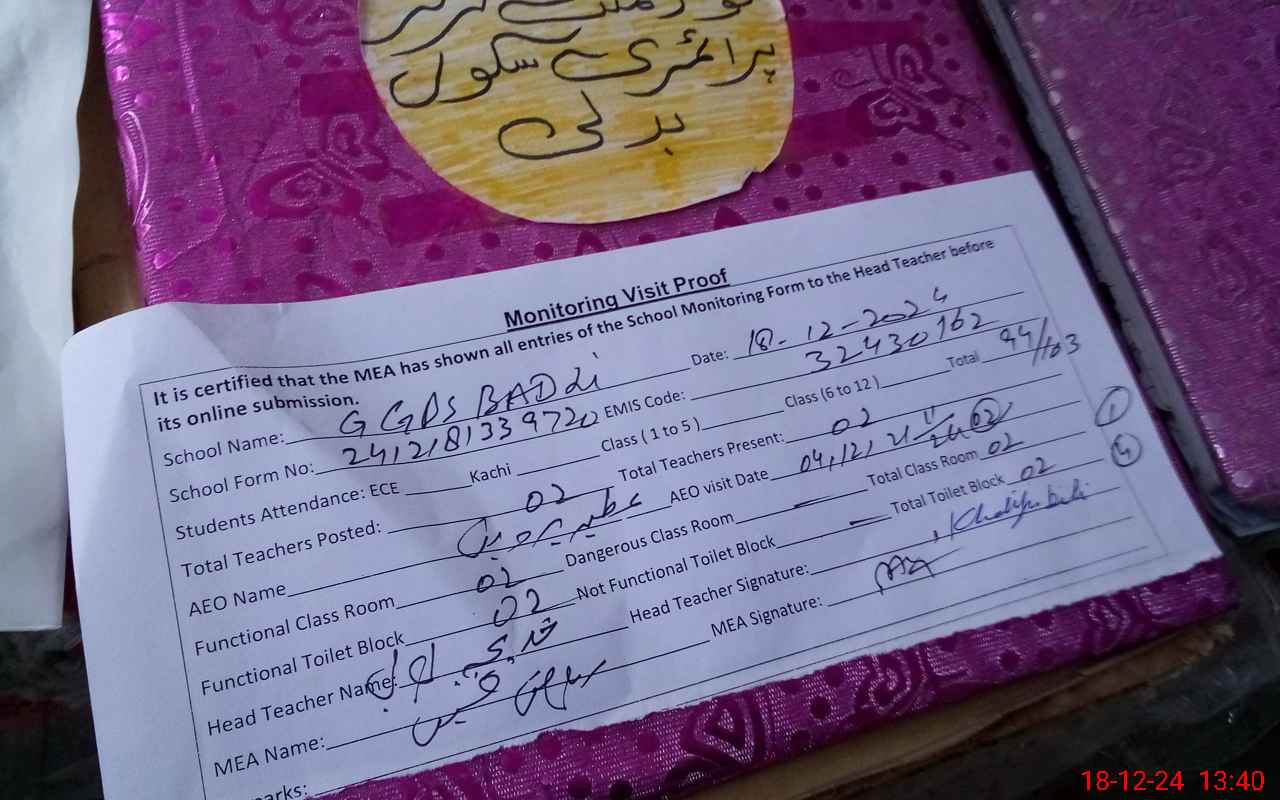 پرائمری سکول
بدلی
Monitoring Visit Proof
It is certified that the MEA has shown all entries of the School Monitoring Form to the Head Teacher before
its online submission.
School Name: GGPS BADLi Date: 18-12-2024
School Form No: 2412181339720 EMIS Code: 32430162
Students Attendance: ECE Kachi Class ( 1 to 5 ) Class (6 to 12 ) Total 94/103
Total Teachers Posted: 02 Total Teachers Present: 02
AEO Name AEO visit Date 04,12, 21 11 24 02
Functional Class Room 02 Dangerous Class Room — Total Class Room 02 1
Functional Toilet Block 02 Not Functional Toilet Block — Total Toilet Block 02 4
Head Teacher Name: Head Teacher Signature:
MEA Name: MEA Signature:
arks:
18-12-24 13:40